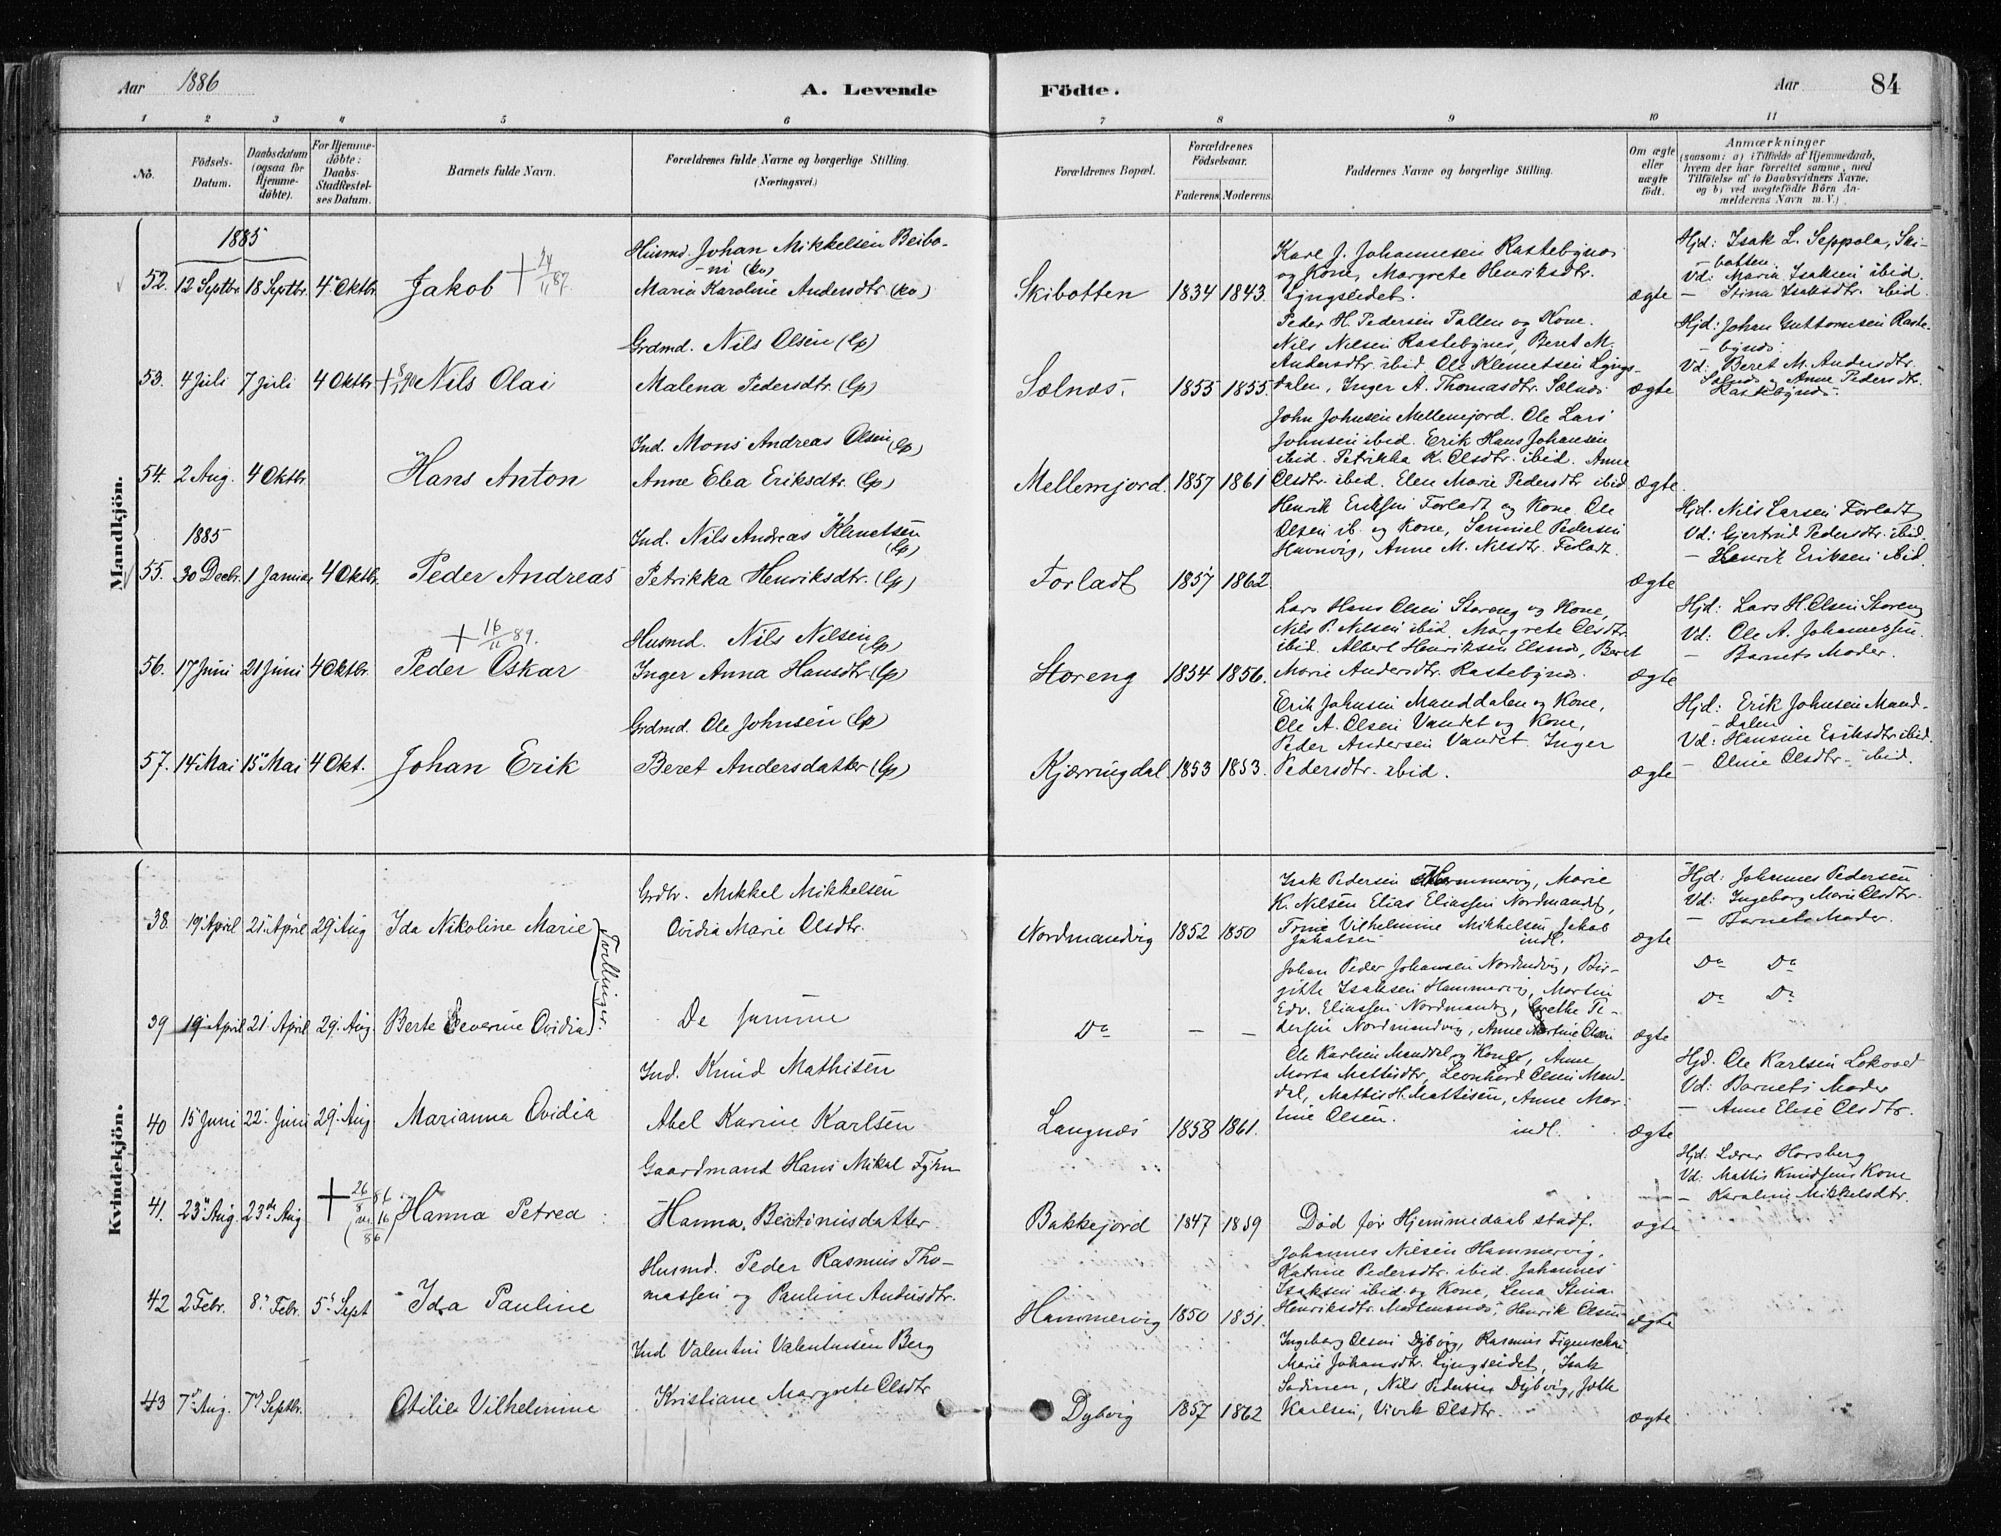 Aar 1886 A. Levende Födte. Aar 84
1 2 3 4 5 6 7 8 9 10 11
No. Födsels-Datum. Daabsdatum (ogsaa for Hjemmedöbte). For Hjemmedöbte: Daabs-Stadfæstelses Datum. Barnets fulde Navn. Forældrenes fulde Navne og borgerlige Stilling. (Næringsvei.) Forældrenes Bopæl. Forældrenes Födselsaar. Faderens. Moderens. Faddernes Navne og borgerlige Stilling. Om ægte eller uægte födt. Anmærkninger (saasom: a) i Tilfælde af Hjemmedaab, hvem der har forrettet samme, med Tilföielse af to Daabsvidners Navne, og b) ved uægtefödte Börn Anmelderens Navn m. V.)
Mandkjön.
1885
52. 12 Septbr. 18 Septbr. 4 Oktbr. Jakob + 24/11 87.
Husmd. Johan Mikkelsen Beibo-
ni (kv)
Maria Karoline Andersdtr (kv)
Skibotten 1834 1843.
Karl J. Johannesen Rastebynæs
og Kone, Margrete Henriksdtr.
Lyngseidet.
ægte
Hjd: Isak L. Seppola, Ski-
botten.
Vd: Maria Isaksen ibid
— Stina Isaksdtr. ibid.
53. 4 Juli 7 Juli 4 Oktbr Nils Olai
Grdmd. Nils Olsen (lp)
Malena Pedersdtr. (lp)
Sælnæs. 1855 1855.
Peder H. Pedersen Pollen og Kone.
Nils Nilsen Rastebynes, Beret M.
Andersdtr. ibid. Ole Klemetsen Lyngs-
dalen, Inger A. Thomasdtr. Sælnæs
ægte
Hjd: Johan Guttormsen Raste-
bynæs.
Vd: Beret M. Andersdtr.
Sælnæs og Anne Pedersdtr.
Rastebynæs.
54. 2 Aug. 4 Oktbr. Hans Anton
Ind. Mons Andreas Olsen (lp)
Anne Elea Eriksdtr. (lp)
Mellemjord. 1857 1861
John Johnsen Mellemjord. Ole Lars
Johnsen ibid. Erik Hans Johansen
ibid. Petrikka K. Olsdtr. ibid. Anne
Olsdtr. ibid. Elen Marie Pedersdtr ibid
ægte.
1885
55. 30 Decbr. 1 Januar 4 Oktbr. Peder Andreas
Ind. Nils Andreas Klemetsen (lp)
Petrikka Henriksdtr. (lp)
Forladt 1857 1862.
Henrik Eriksen Forladt og Kone Ole
Olsen ib. og Kone, Samuel Pedersen
Havnvig, Anne M. Nilsdtr. Forladt.
ægte
Hjd: Nils Larsen Forladt
Vd: Gjertrud Pedersdtr. ibid.
— Henrik Eriksen ibid.
56. 17 Juni 21 Juni 4 Oktbr. Peder Oskar + 16/11 89.
Husmd. Nils Nilsen (lp)
Inger Anna Hansdtr (lp)
Storeng 1854 1856.
Lars Hans Olsen Storeng og Kone,
Nils P. Nilsen ibid. Margrete Olsdtr.
ibid. Albert Henriksen Elsnæs, Beret
Marie Andersdtr. Rastebynæs.
ægte
Hjd: Lars H. Olsen Storeng
Vd: Ole A. Johannessen.
— Barnets Moder.
57. 14 Mai 15 Mai 4 Okt. Johan Erik
Grdmd. Ole Johnsen (lp)
Beret Andersdatter (lp)
Kjærringdal. 1853 1853.
Erik Johnsen Manddalen og Kone,
Ole A. Olsen Vandet og Kone,
Peder Andersen Vandet. Inger
Pedersdtr. ibid.
ægte
Hjd: Erik Johnsen Mand-
dalen
Vd: Hansine Eriksdtr ibid.
— Oline Olsdtr. ibid.
Kvindekjön.
38. 19 April 21 April 29 Aug Ida Nikoline Marie
Tvillinger.
Grdbr. Mikkel Mikkelsen
Ovidia Marie Olsdtr.
Nordmandvig 1852 1850
Isak Pedersen Hammervig, Marie
K. Nilsen Elias Eliassen Nordmandv,
Trine Vilhelmine Mikkelsen, Jakob
Jakobsen indl.
ægte
Hjd: Johannes Pedersen
Vd: Ingeborg Marie Olsdtr.
— Barnets Moder.
39 19 April 21 April 29 Aug. Berte Severine Ovidia
De samme
Do — —
Johan Peder Johansen Nordmdvig, Bir-
gitte Isaksen Hammervig, Martin
Edv. Eliassen Nordmandvg, Grethe Pe-
dersen Nordmandvig, Anne Martine Olsen
ægte
Do Do
Do Do
40 15 Juni 22 Juni 29 Aug Marianna Ovidia
Ind. Knud Mathisen
Abel Karine Karlsen
Langnæs 1858 1861.
Ole Karlsen Manddal og Kone, Anne
Marta Mattisdtr, Leonhard Olsen Mand-
dal, Mattis H. Mattisen, Anne Mar-
tine Olsen. indl.
ægte
Hjd. Ole Karlsen Lokvold
Vd: Barnets Moder
— Anne Elise Olsdtr.
41. 23 Aug. 23de Aug + 26/8 86 Hanna Petrea
Gaardmand Hans Mikal Fyhn
Hanna Bertinusdatter
Bakkejord 1847 1859
Død før Hjemmedaab stadf.
ægte
Hjd: Lærer Horsberg
Vd: Mattis Knudsens Kone
— Karoline Mikkelsdtr.
42 2 Febr. 8 Febr. 5 Sept Ida Pauline
Husmd. Peder Rasmus Tho-
massen og Pauline Antusdtr.
Hammervig 1850 1851.
Johannes Nilsen Hammervig.
Katrine Pedersdtr. ibid. Johannes
Isaksen ibid. og Kone, Lena Stina
Henriksdtr. Mortensnæs, Henrik Olsen
ægte
43 7 Aug. 7 Septbr. Otilie Vilhelmine
Ind Valentin Valentinsen Berg
Kristiane Margrete Olsdtr
Dybvig 1857 1862
Ingeborg Olsen Dybvig, Rasmus Figenschau
Marie Johansdtr. Lyngseidet, Isak
Nils Pedersen Dybvig,
Karlsen, Vivik Olsdtr.
ægte